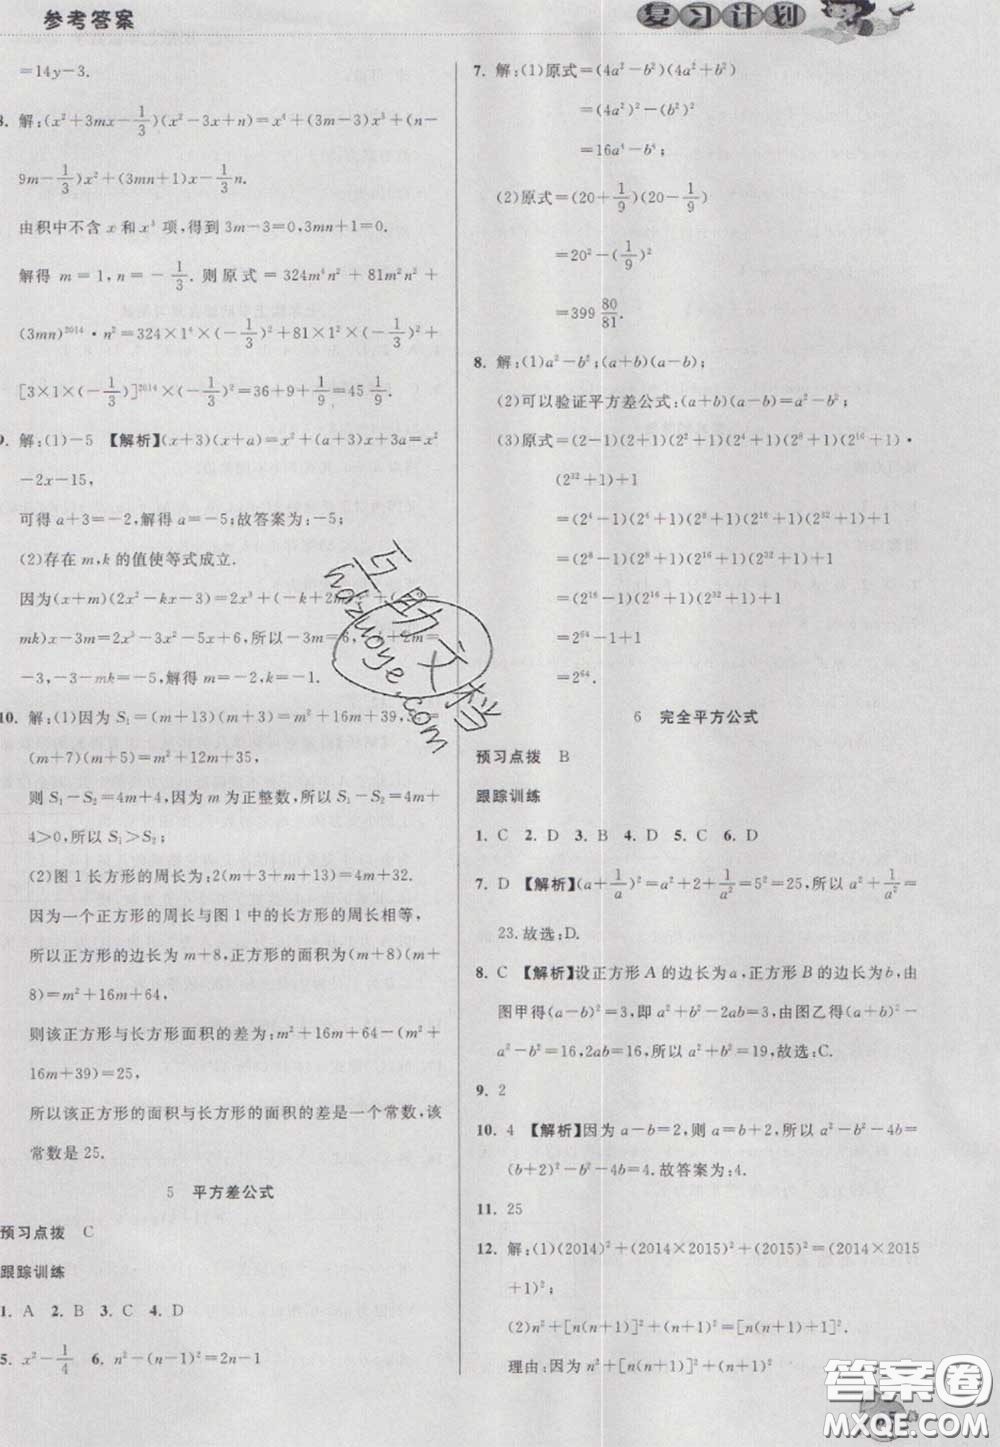 参考答案
复习计划
=14y-3.
8. 解:(x²+3mx-1/3)(x²-3x+n)=x⁴+(3m-3)x³+(n-
9m-1/3)x²+(3mn+1)x-1/3n.
由积中不含 x 和 x³ 项,得到 3m-3=0,3mn+1=0.
解得 m=1,n=-1/3. 则原式=324m⁴n²+81m²n²+
(3mn)²⁰¹⁴·n²=324×1⁴×(-1/3)²+81×1²×(-1/3)²+
[3×1×(-1/3)]²⁰¹⁴×(-1/3)²=36+9+1/9=45 1/9.
9. 解:(1)-5 【解析】(x+3)(x+a)=x²+(3+a)x+3a=x²
-2x-15,
可得 a+3=-2,解得 a=-5;故答案为:-5;
(2)存在 m,k 的值使等式成立.
因为(x+m)(2x²-kx-3)=2x³+(-k+2m)x²+(-3-
mk)x-3m=2x³-3x²-5x+6,所以-3m=6,-k+2m=
-3,-3-mk=-5,解得 m=-2,k=-1.
10. 解:(1)因为 S₁=(m+13)(m+3)=m²+16m+39,S₂=
(m+7)(m+5)=m²+12m+35,
则 S₁-S₂=4m+4,因为 m 为正整数,所以 S₁-S₂=4m+
4>0,所以 S₁>S₂;
(2)图 1 长方形的周长为:2(m+3+m+13)=4m+32.
因为一个正方形的周长与图 1 中的长方形的周长相等,
所以正方形的边长为 m+8,正方形的面积为(m+8)(m+
8)=m²+16m+64,
则该正方形与长方形面积的差为:m²+16m+64-(m²+
16m+39)=25,
所以该正方形的面积与长方形的面积的差是一个常数,该
常数是 25.
5 平方差公式
预习点拨 C
跟踪训练
1. A 2. B 3. C 4. D
5. x²-1/4 6. n²-(n-1)²=2n-1
7. 解:(1)原式=(4a²-b²)(4a²+b²)
=(4a²)²-(b²)²
=16a⁴-b⁴;
(2)原式=(20+1/9)(20-1/9)
=20²-(1/9)²
=399 80/81.
8. 解:(1)a²-b²;(a+b)(a-b);
(2)可以验证平方差公式:(a+b)(a-b)=a²-b²;
(3)原式=(2-1)(2+1)(2²+1)(2⁴+1)(2⁸+1)(2¹⁶+1)·
(2³²+1)+1
=(2⁴-1)(2⁴+1)(2⁸+1)(2¹⁶+1)(2³²+1)+1
=(2⁸-1)(2⁸+1)(2¹⁶+1)(2³²+1)+1
=(2¹⁶-1)(2¹⁶+1)(2³²+1)+1
=2⁶⁴-1+1
=2⁶⁴.
6 完全平方公式
预习点拨 B
跟踪训练
1. C 2. D 3. B 4. D 5. C 6. D
7. D 【解析】(a+1/a)²=a²+2+1/a²=5²=25,所以 a²+1/a²=
23.故选:D.
8. C 【解析】设正方形 A 的边长为 a,正方形 B 的边长为 b,由
图甲得(a-b)²=3,即 a²+b²-2ab=3,由图乙得(a+b)²-
a²-b²=16,2ab=16,所以 a²+b²=19,故选:C.
9. 2
10. 4 【解析】因为 a-b=2,则 a=b+2,所以 a²-b²-4b=
(b+2)²-b²-4b=4.故答案为:4.
11. 25
12. 解:(1)(2014)²+(2014×2015)²+(2015)²=(2014×2015
+1)²;
(2)n²+[n(n+1)]²+(n+1)²=[n(n+1)+1]².
理由:因为 n²+[n(n+1)]²+(n+1)²
互助文档
hdzuoye.com
答案圈
MXQE.COM